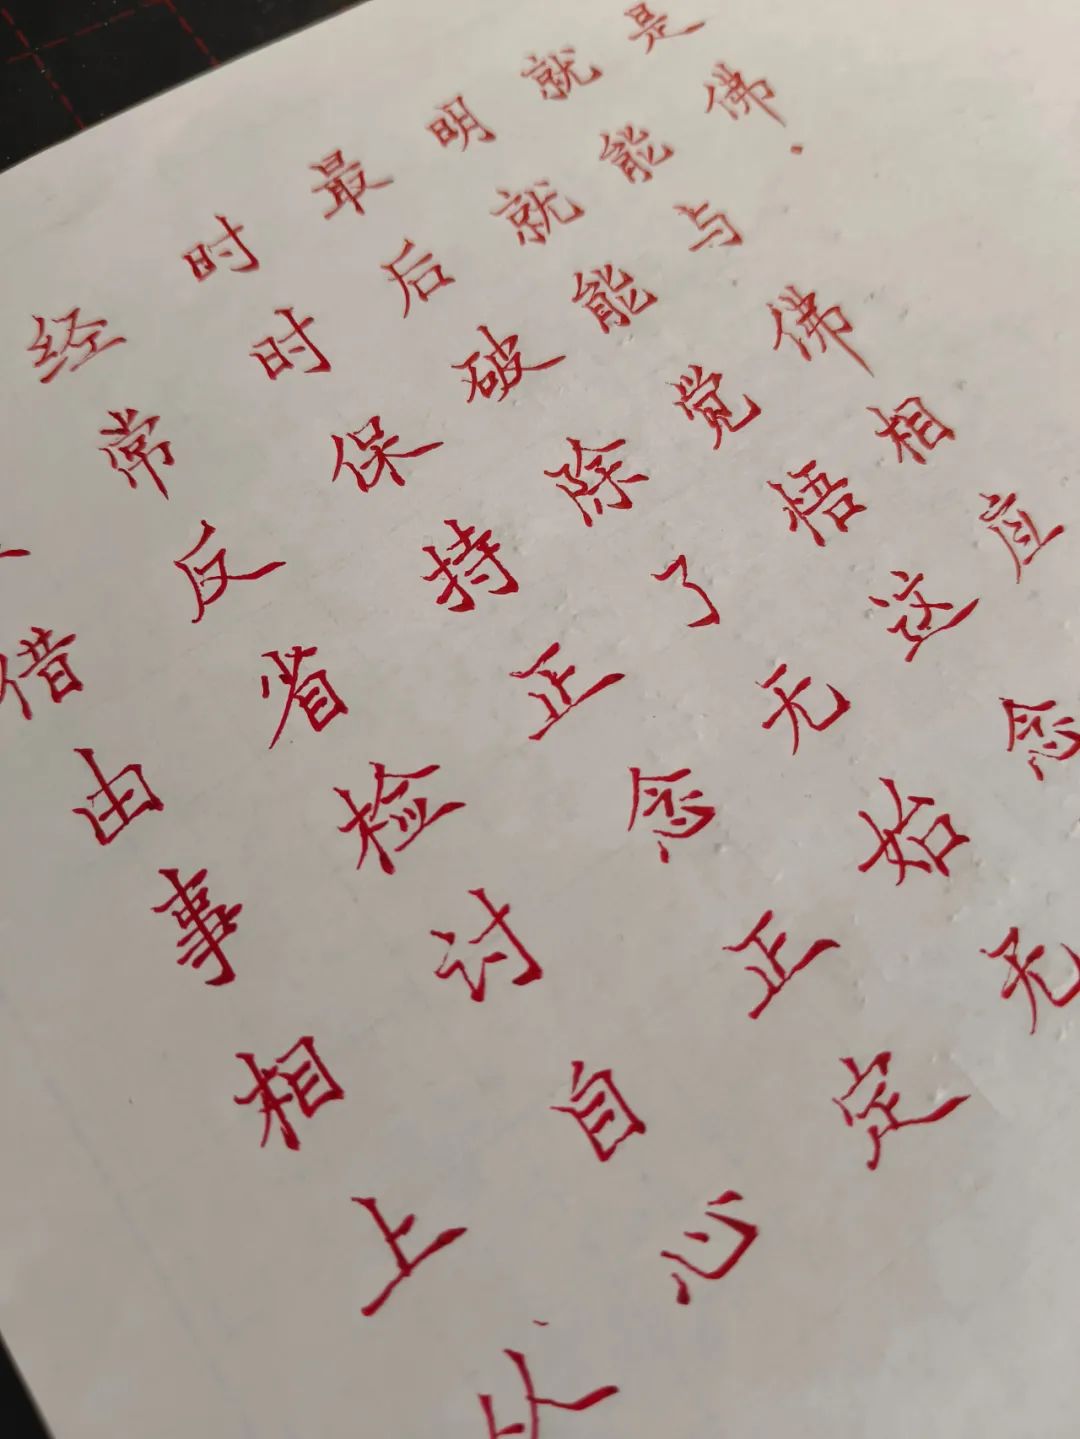 借由事相上
经常反省检讨自心
时时保持正念正定
最后破除了无始无
明就能觉悟这念
就能与佛相应
是佛.